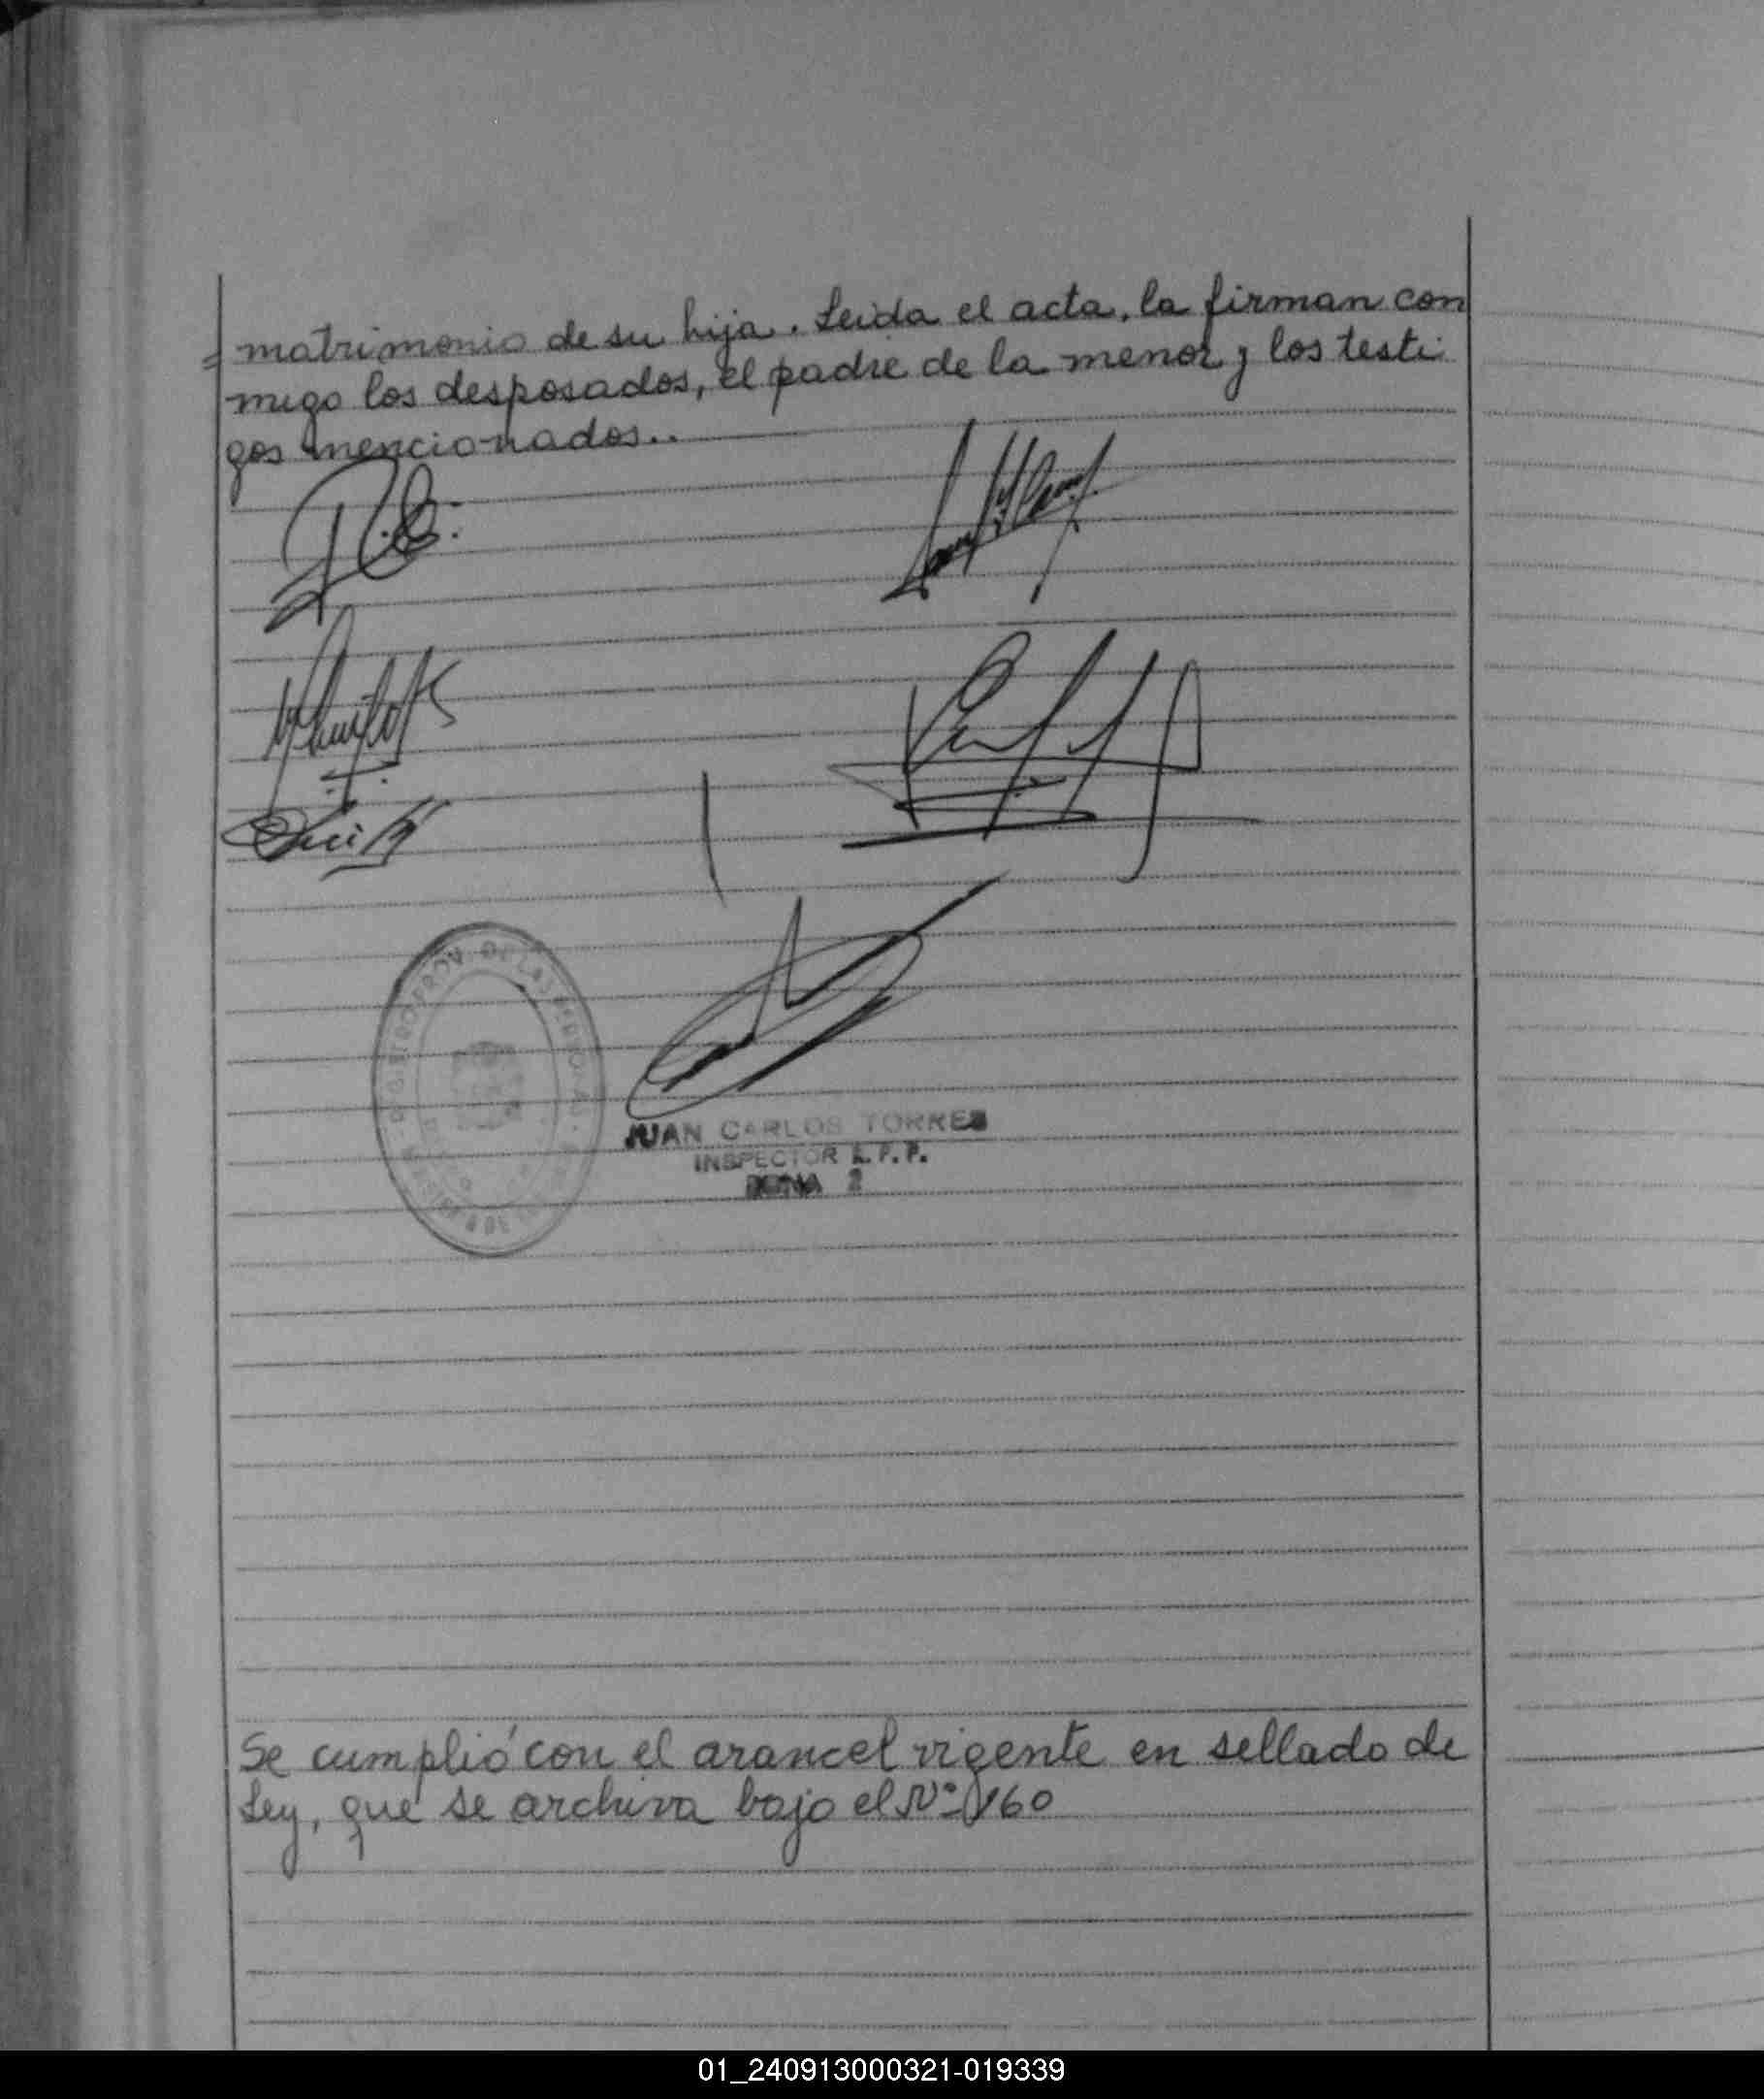 = matrimonio de su hija. Leida el acta, la firman con
migo los desposados, el padre de la menor y los testi
gos mencionados..
JUAN CARLOS TORRES
INSPECTOR L.P.P.
ZONA 2
Se cumplió con el arancel vigente en sellado de
Ley, que se archiva bajo el Nº 160
01_240913000321-019339